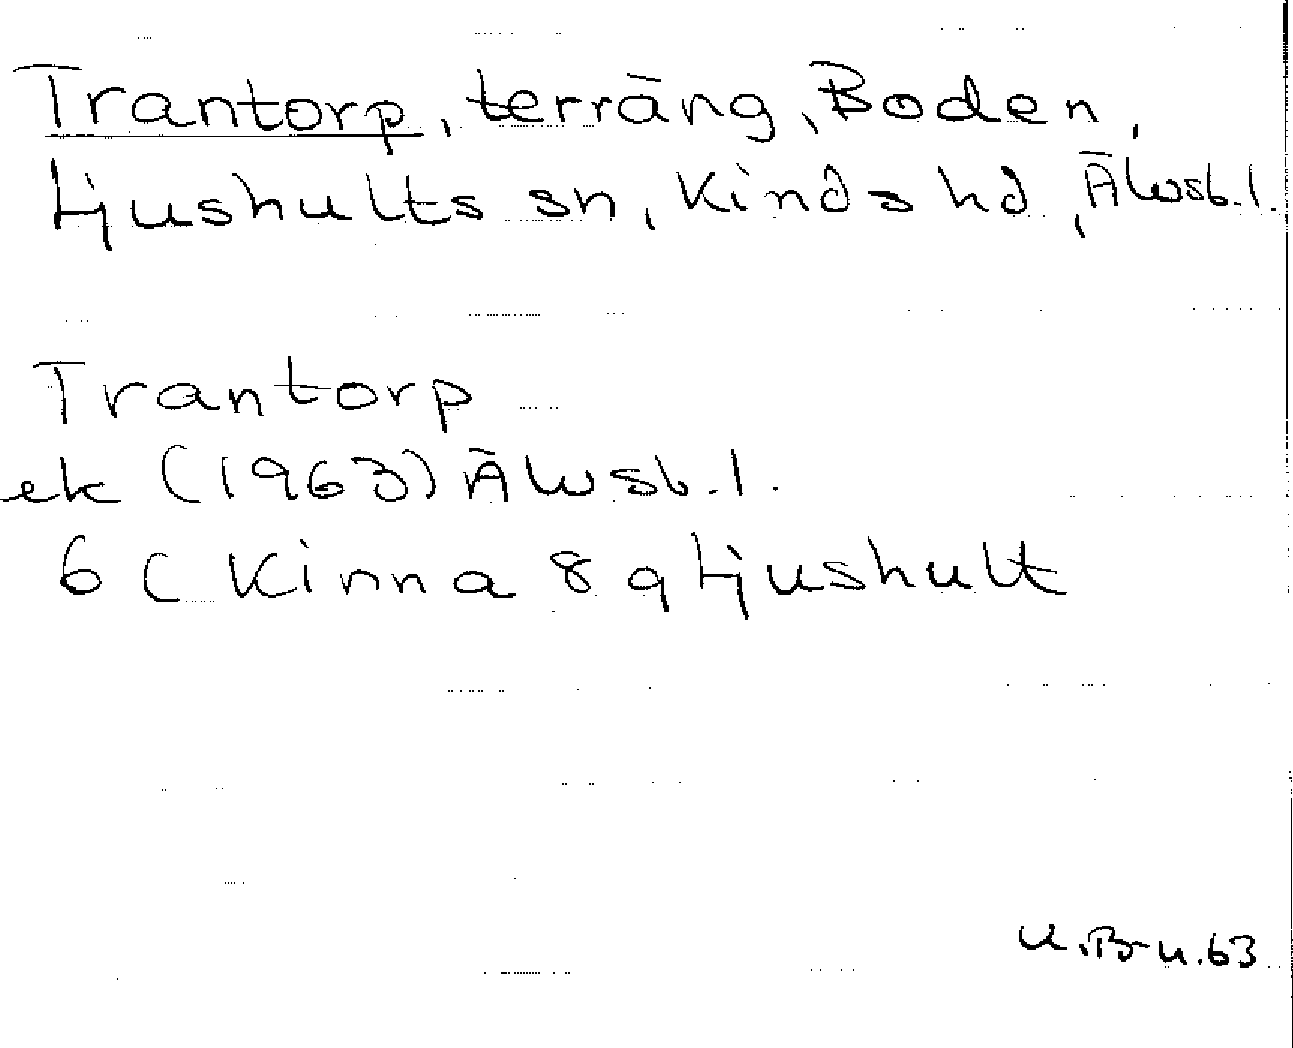 Trantorp, terräng, Boden,
Ljushults sn, Kinds hd, Älvsb.l.
Trantorp
ek (1963) Älvsb.l.
6 C Kinna 8 g Ljushult
u.B-u.63